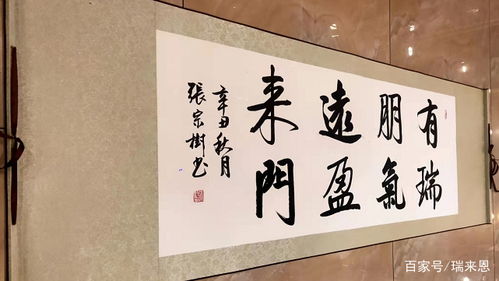 有朋遠来
瑞氣盈門
辛丑秋月
張宗樹书
百家号/瑞来恩